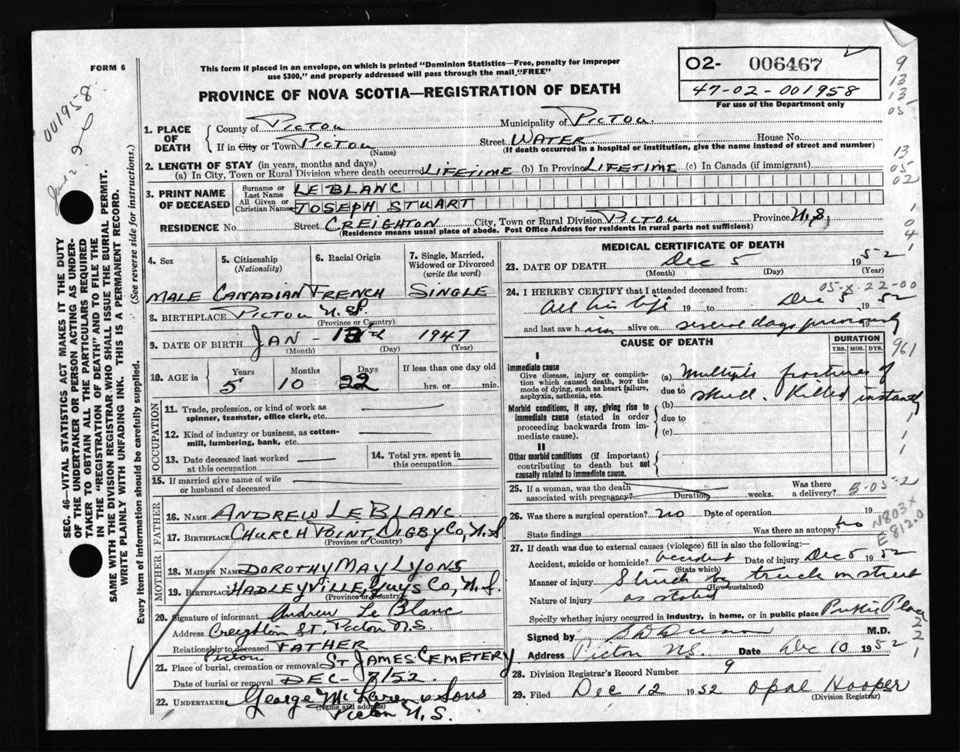 FORM 6
This form if placed in an envelope, on which is printed "Dominion Statistics—Free, penalty for improper
use $300," and properly addressed will pass through the mail "FREE"
PROVINCE OF NOVA SCOTIA—REGISTRATION OF DEATH
O2- 006467
47-02-001958
For use of the Department only
001958
1. PLACE OF DEATH
County of PICTOU Municipality of PICTOU
If in City or Town PICTOU (Name) Street WATER House No.
(If death occurred in a hospital or institution, give the name instead of street and number)
2. LENGTH OF STAY (in years, months and days)
(a) In City, Town or Rural Division where death occurred LIFETIME (b) In Province LIFETIME (c) In Canada (if immigrant)
3. PRINT NAME OF DECEASED
Surname or Last Name LE BLANC
All Given or Christian Names JOSEPH STUART
RESIDENCE No. Street CREIGHTON City, Town or Rural Division PICTOU Province N.S.
(Residence means usual place of abode. Post Office Address for residents in rural parts not sufficient)
4. Sex
5. Citizenship (Nationality)
6. Racial Origin
7. Single, Married, Widowed or Divorced (write the word)
MALE CANADIAN FRENCH SINGLE
8. BIRTHPLACE PICTOU N.S.
(Province or Country)
9. DATE OF BIRTH JAN 1947
(Month) (Day) (Year)
10. AGE in Years Months Days If less than one day old
5 10 22 hrs. or min.
OCCUPATION
11. Trade, profession, or kind of work as spinner, teamster, office clerk, etc.
12. Kind of industry or business, as cotton-mill, lumbering, bank, etc.
13. Date deceased last worked at this occupation
14. Total yrs. spent in this occupation
15. If married give name of wife or husband of deceased
FATHER
16. NAME ANDREW LE BLANC
17. BIRTHPLACE CHURCH POINT, DIGBY CO, N.S
(Province or Country)
MOTHER
18. MAIDEN NAME DOROTHY MAY LYONS
19. BIRTHPLACE HADLEYVILLE, GUYS CO, N.S.
(Province or Country)
20. Signature of informant Andrew Le Blanc
Address Creighton St, Pictou N.S.
Relationship to deceased FATHER
21. Place of burial, cremation or removal Pictou ST JAMES CEMETERY
Date of burial or removal DEC-8/52
22. UNDERTAKER George McLaren & Sons
(Name and address)
Pictou N.S.
MEDICAL CERTIFICATE OF DEATH
23. DATE OF DEATH Dec 5 1952
(Month) (Day) (Year)
05-X-22-00
24. I HEREBY CERTIFY that I attended deceased from:
All his life 19 to Dec 5 1952
and last saw him alive on several days previously 19
CAUSE OF DEATH
DURATION
YRS. MOS. DYS.
I
Immediate cause
Give disease, injury or complication which caused death, not the mode of dying, such as heart failure, asphyxia, asthenia, etc.
(a) Multiple fractures of
due to skull. Killed instantly
Morbid conditions, if any, giving rise to immediate cause (stated in order proceeding backwards from immediate cause).
(b)
due to
(c)
II
Other morbid conditions (if important) contributing to death but not causally related to immediate cause.
25. If a woman, was the death associated with pregnancy? Duration weeks. Was there a delivery? B-05-2
26. Was there a surgical operation? no Date of operation 19
State findings Was there an autopsy? no
N803+
E812.0
27. If death was due to external causes (violence) fill in also the following:—
Accident, suicide or homicide? accident Date of injury Dec 5 1952
(State which)
Manner of injury Struck by truck on street
(How sustained)
Nature of injury as stated
Specify whether injury occurred in industry, in home, or in public place Public Place
Signed by M.D.
Address Pictou N.S. Date Dec 10 1952
28. Division Registrar's Record Number 9
29. Filed Dec 12 1952 Opal Hooper
(Division Registrar)
SEC. 46—VITAL STATISTICS ACT MAKES IT THE DUTY
OF THE UNDERTAKER OR PERSON ACTING AS UNDER-
TAKER TO OBTAIN ALL THE PARTICULARS REQUIRED
IN THE "REGISTRATION OF DEATH" AND TO FILE THE
SAME WITH THE DIVISION REGISTRAR WHO SHALL ISSUE THE BURIAL PERMIT.
WRITE PLAINLY WITH UNFADING INK. THIS IS A PERMANENT RECORD.
Every item of information should be carefully supplied. (See reverse side for instructions.)
9
13
13
05
13
05
02
1
0
4
1
961
1
1
1
2
2
1